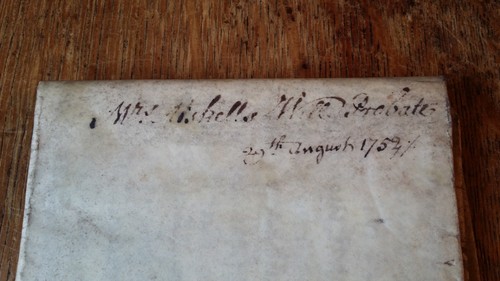 Mrs. Ushells Will & Probate
29th August 1754